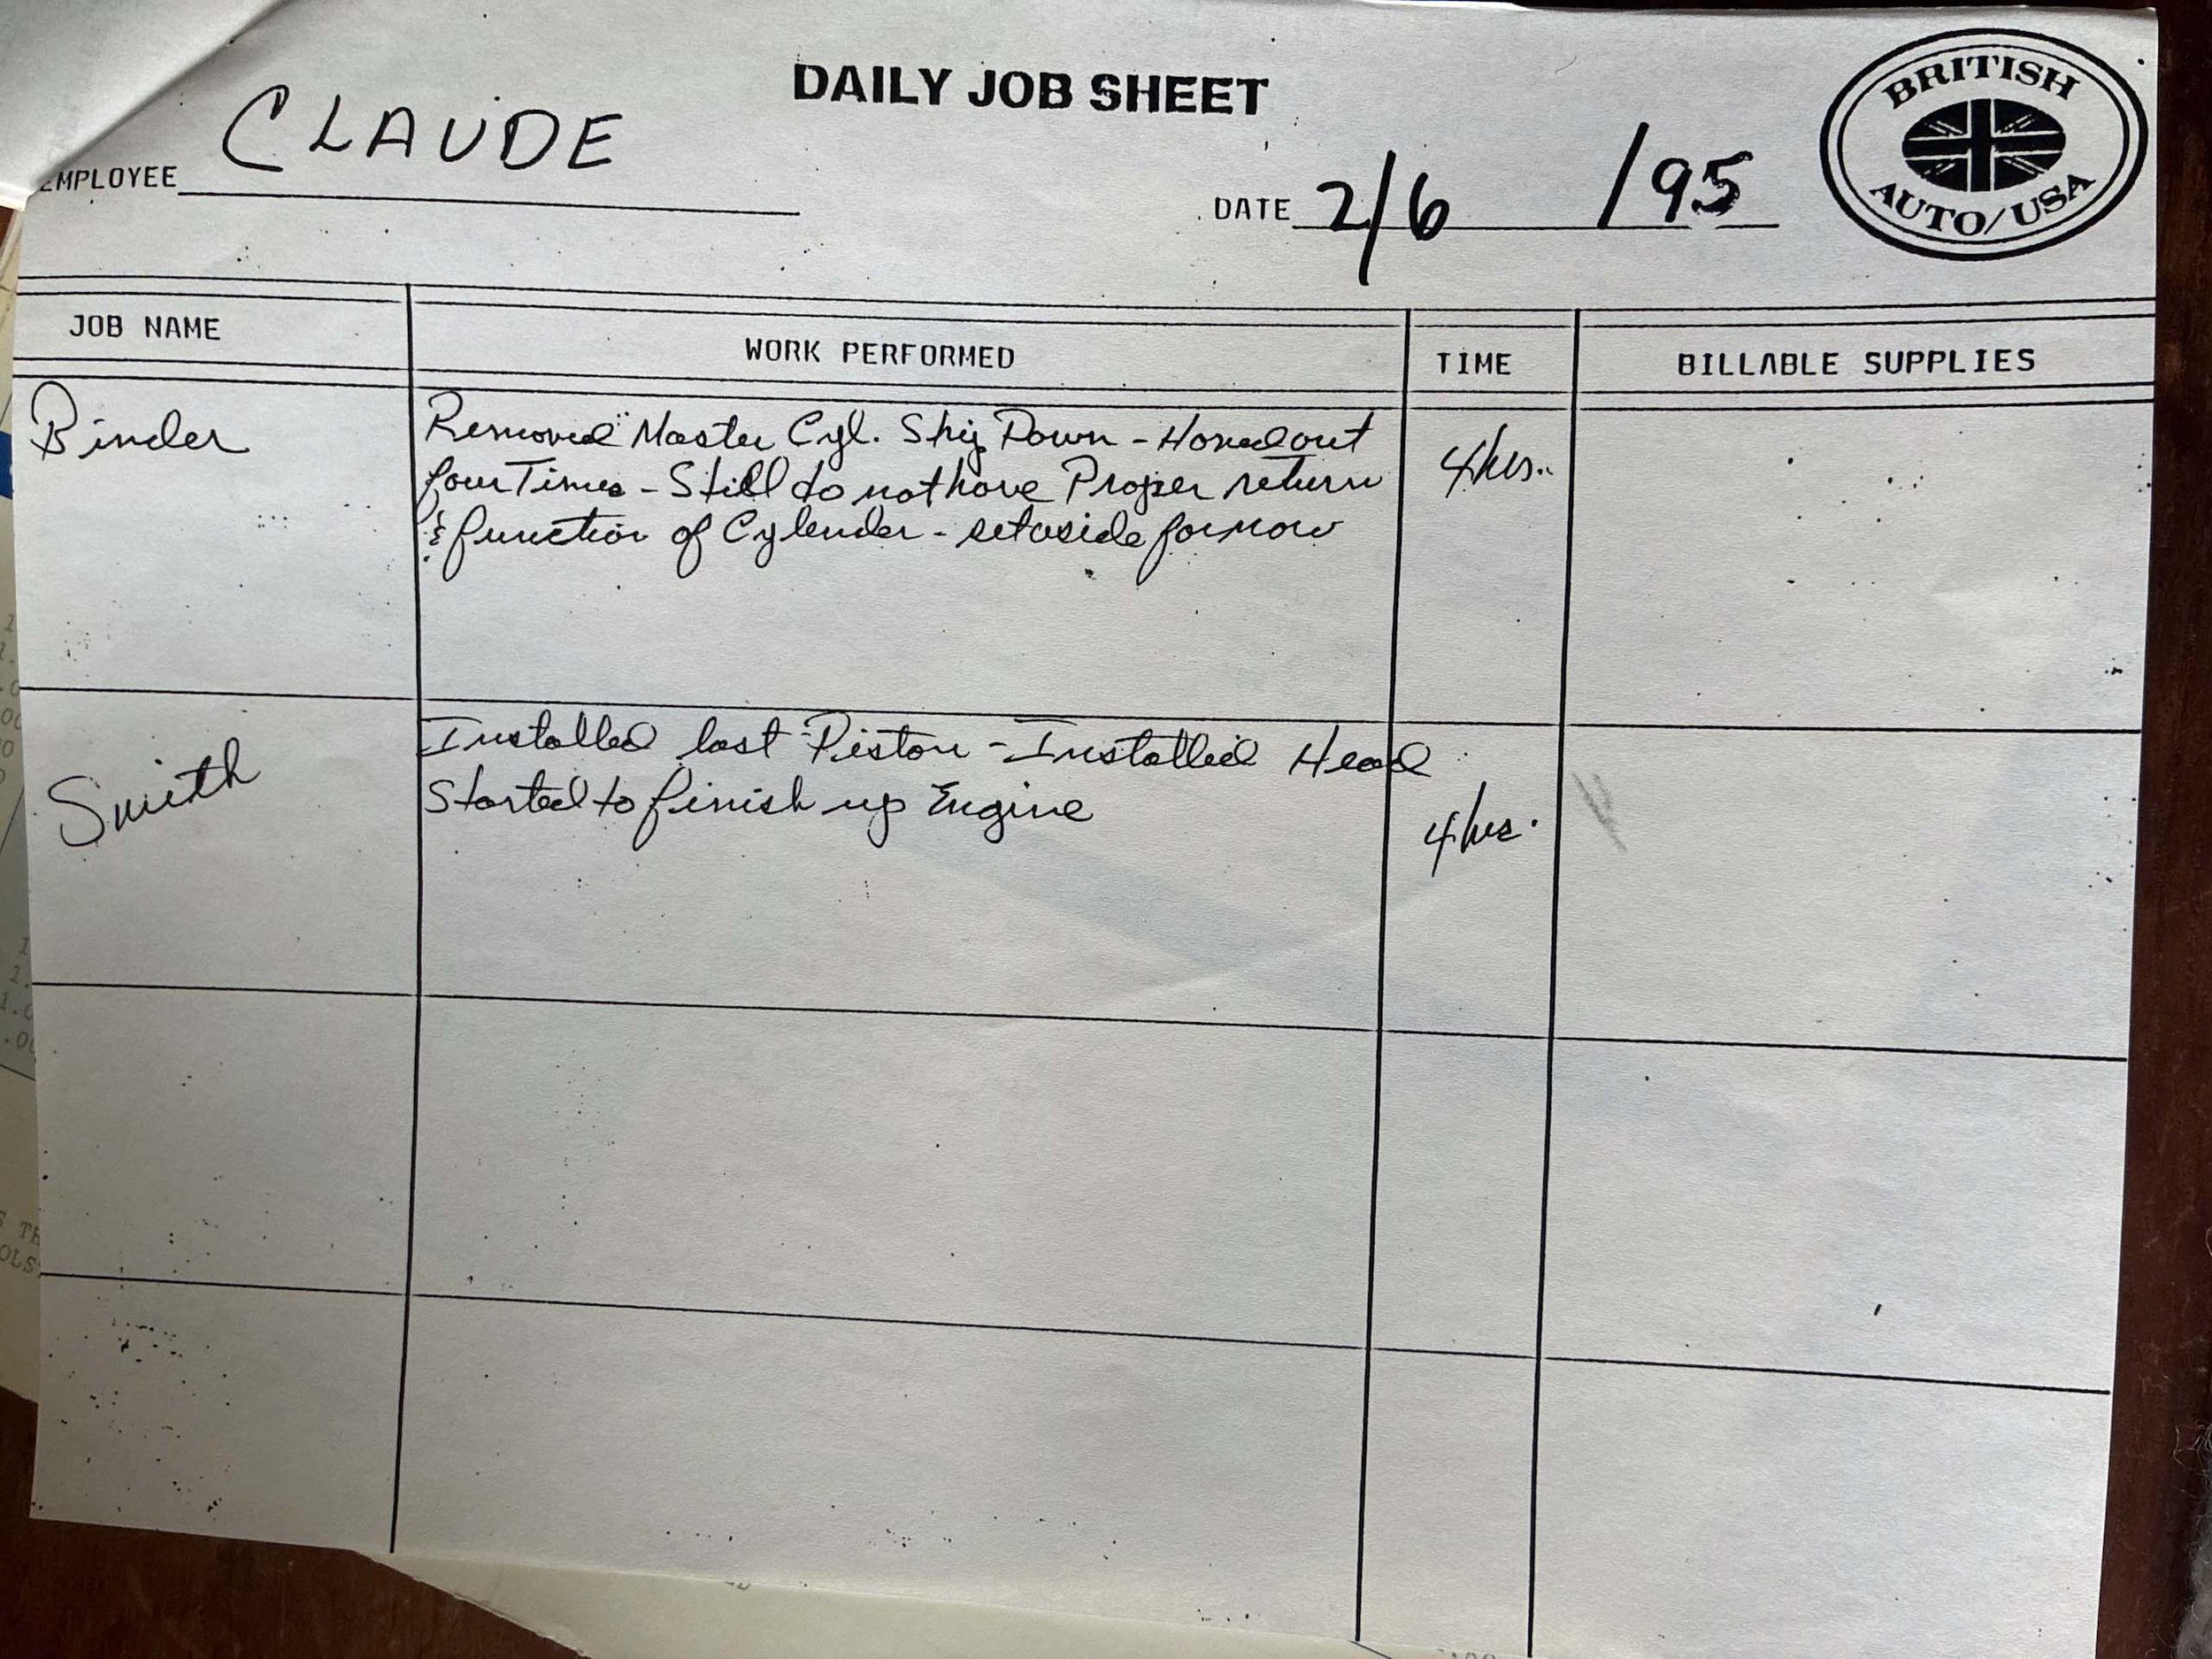 DAILY JOB SHEET
BRITISH
AUTO/USA
EMPLOYEE CLAUDE
DATE 2/6 /95
JOB NAME
WORK PERFORMED
TIME
BILLABLE SUPPLIES
Binder
Removed Master Cyl. Down - Honed out
four Times - Still do not have Proper return
& function of Cylender - set aside for now
4 hrs.
Smith
Installed last Piston - Installed Head
Started to finish up Engine
4 hrs.